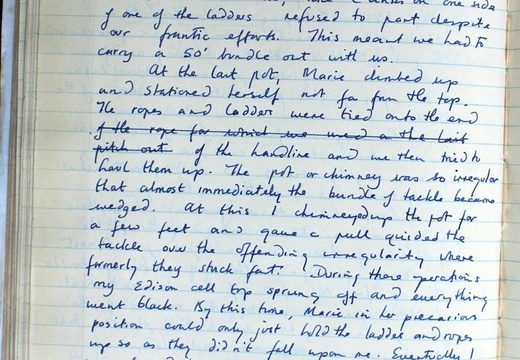 on one side
of one of the ladders refused to part despite
our frantic efforts. This meant we had to
carry a 50' bundle out with us.
At the last pot, Marie climbed up
and stationed herself not far from the top.
The ropes and ladder were tied onto the end
of the rope for which we used on the last
pitch out of the handline and we then tried to
haul them up. The pot or chimney was so irregular
that almost immediately the bundle of tackle became
wedged. At this I chimneyed up the pot for
a few feet and gave a pull guided the
tackle over the offending irregularity where
formerly they stuck fast. During these operations
my Edison cell top sprung off and everything
went black. By this time, Marie in her precarious
position could only just hold the ladder and ropes
up so as they didn't fall upon me. Eventually I